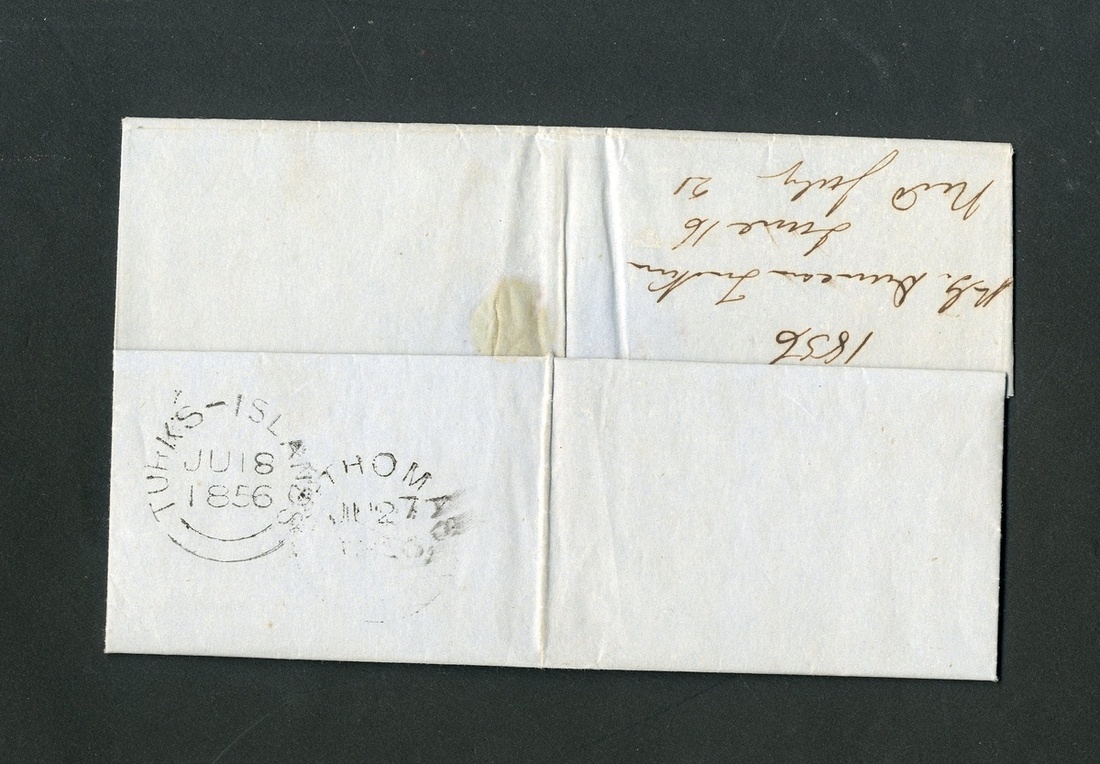 1856
Duncan
June 16
Recd July
21
TURKS-ISLANDS
JU 18
1856
ST THOMAS
JU 27
1856